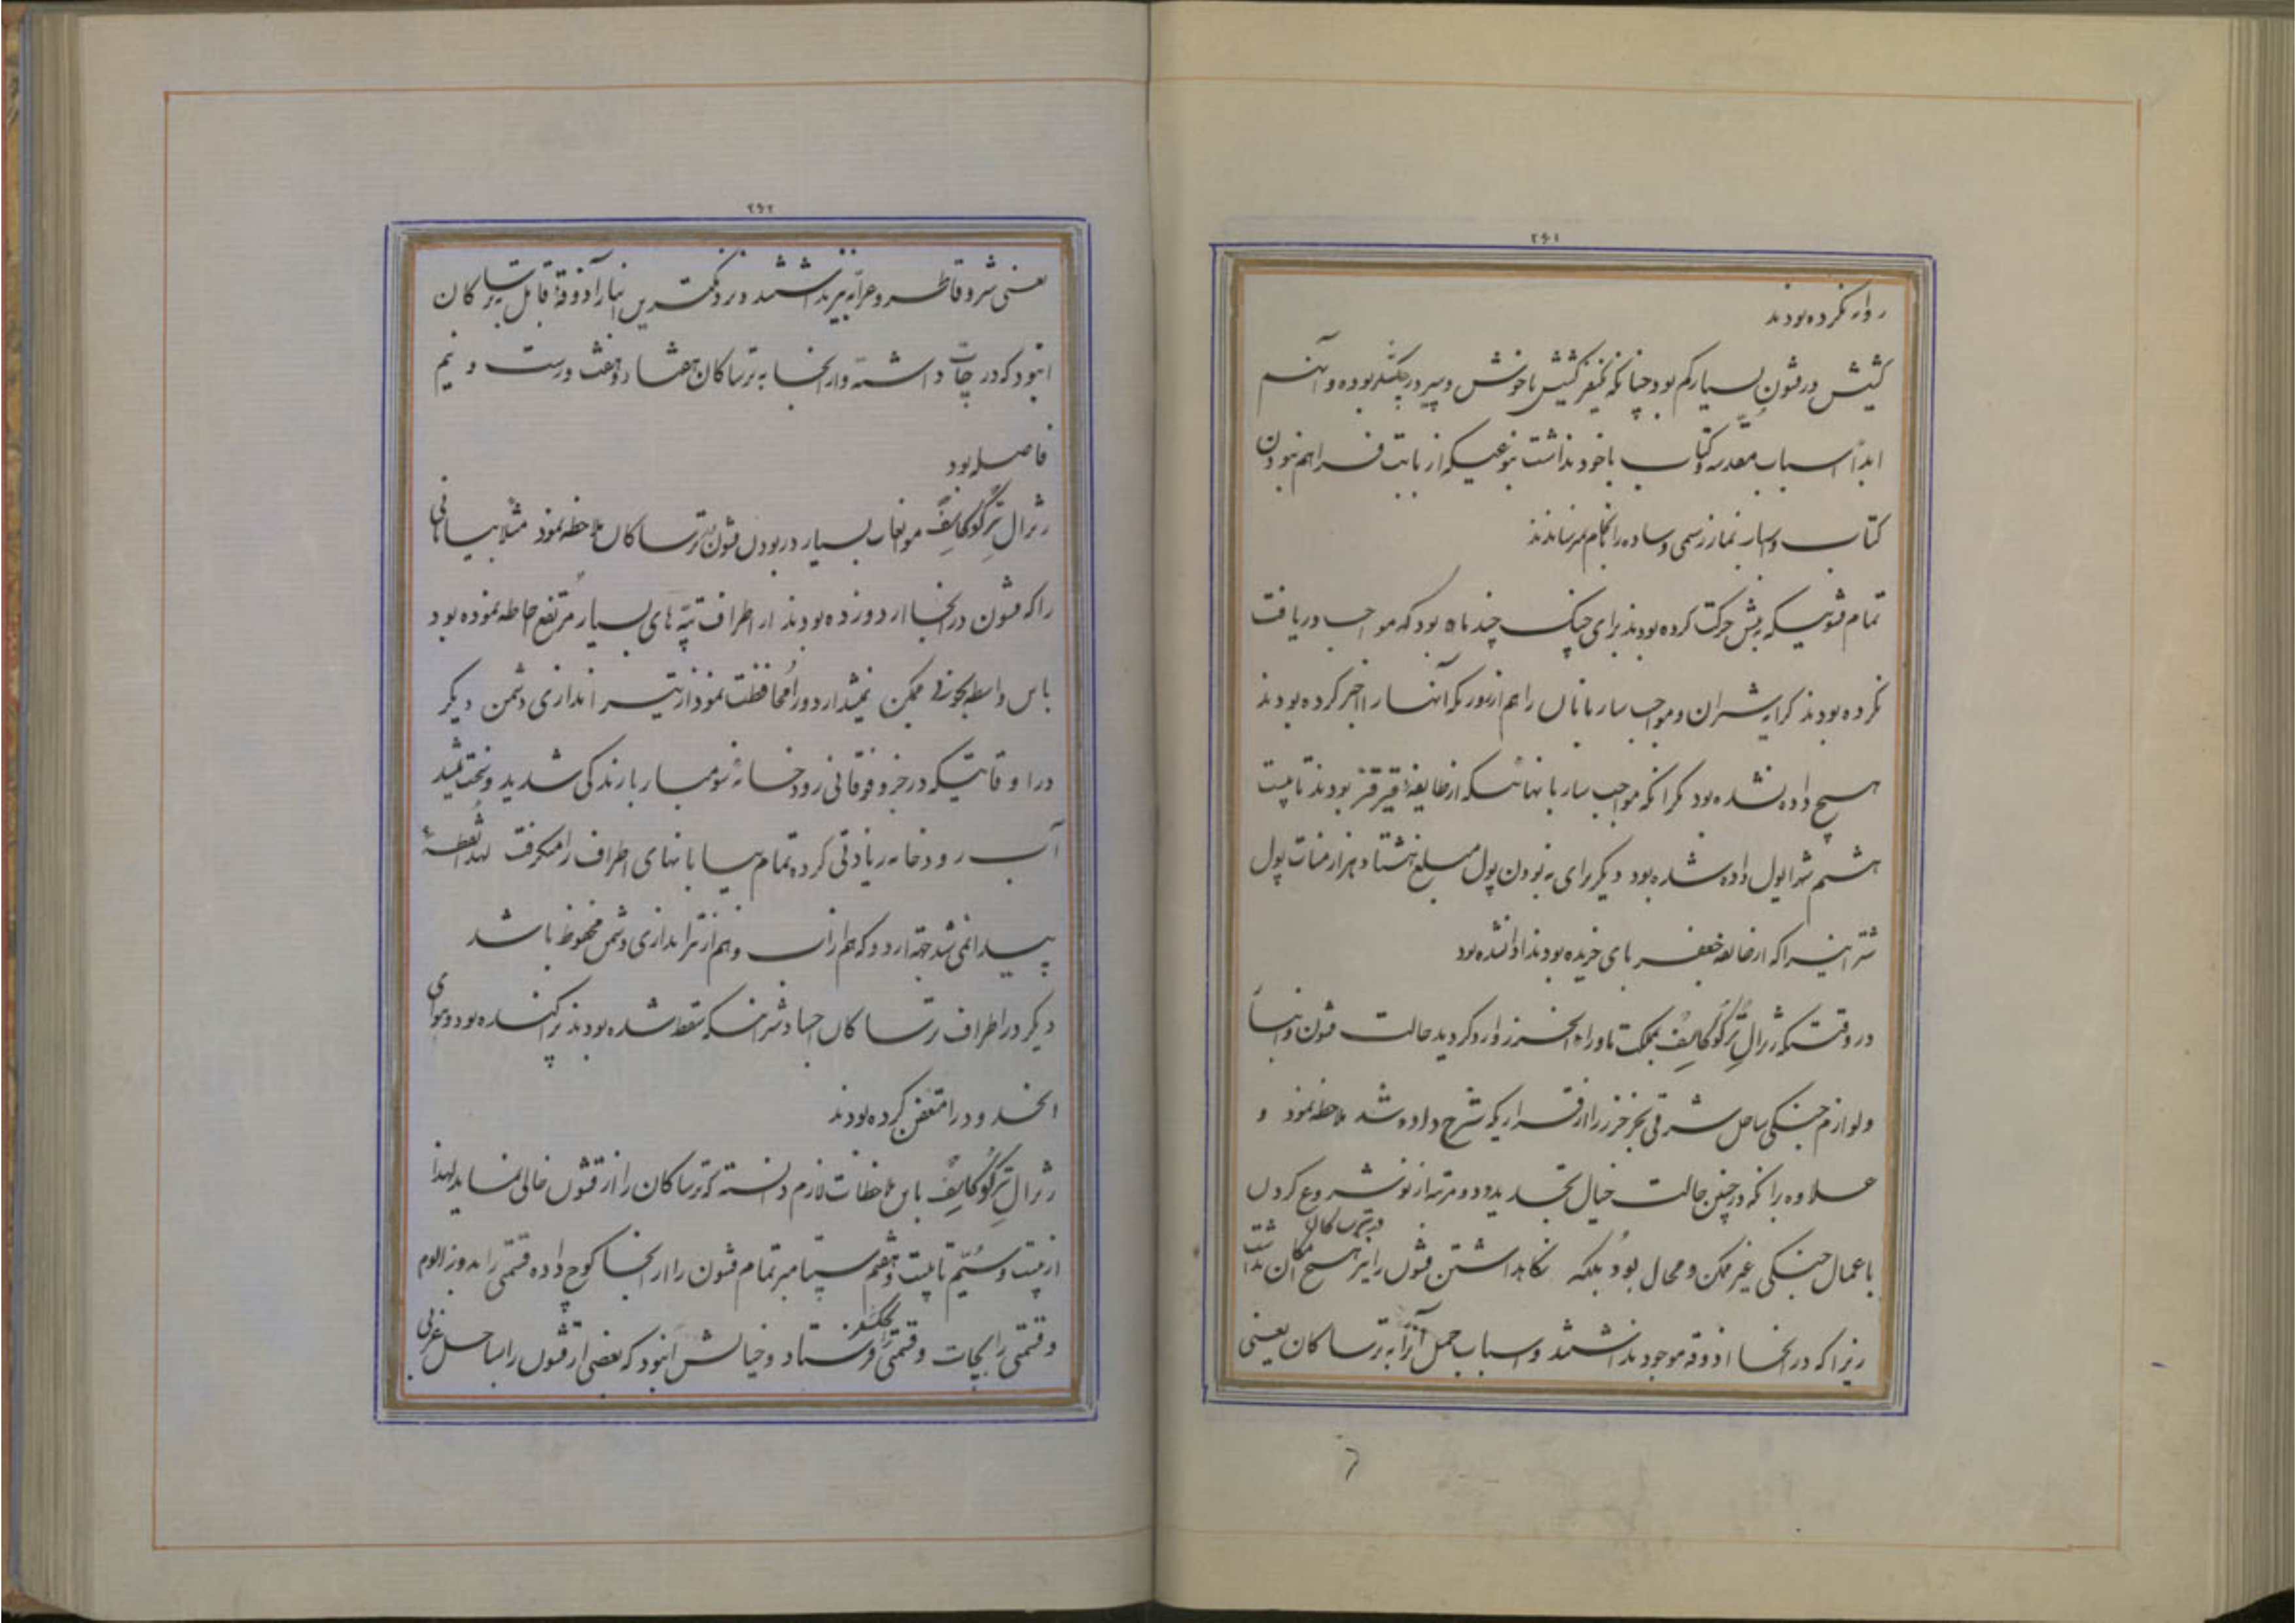 ۲۶۱
روانه نکرده بودند
کشیش در قشون بسیار کم بود چنانکه یکنفر کشیش ناخوش و پیر در چکشلر بوده و آنهم
ابداً اسباب مقدسه و کتاب با خود نداشت بنوعیکه از بابت فراهم نبودن
کتاب و اسباب نماز رسمی و ساده را انجام میرساندند
تمام قشونیکه پیش حرکت کرده بودند برای جنگ چند ماه بود که مواجب دریافت
نکرده بودند کرایه شتران و مواجب ساربانان را هم از روزیکه آنها را اجیر کرده بودند
هیچ داده نشده بود مگر آنکه مواجب ساربانهائیکه از طایفه قیرقیز بودند تا بیست
هشتم ... پول داده شده بود دیگر برای نبودن پول مبلغ هشتاد هزار منات پول
شترانیرا که از طایفه جعفر بای خریده بودند ادا نشده بود
در وقتیکه ژنرال ترگوکایف بمملکت ماوراء الخزر وارد گردید حالت قشون و اسباب
و لوازم جنگی ساحل شرقی بحر خزر را از قراریکه شرح داده شد ملاحظه نمود و
علاوه بر آنکه در چنین حالت خیال تجدید و دو مرتبه از نو شروع کردن
در ترساکان
باعمال جنگی غیر ممکن و محال بود بلکه نگاهداشتن قشون را نیز هیچ امکان نداشت
زیرا که در آنجا آذوقه موجود نداشتند و اسباب حمل آنرا به ترساکان یعنی
۲۶۲
یعنی شتر و قاطر و عرابه نیز نداشتند و نزدیکترین انبار آذوقه قابل به ترساکان
انبود که در چات داشته و از آنجا به ترساکان هفتاد و هفت ورست و نیم
فاصله بود
ژنرال ترگوکایف موانعات بسیار در بودن قشون به ترساکان ملاحظه نمود مثلا بیابانی
را که قشون در آنجا اردو زده بودند از اطراف تپه های بسیار مرتفع احاطه نموده بود
باین واسطه بخوبی ممکن نمیشد اردو را محافظت نمود از تیر اندازی دشمن دیگر
در اوقاتیکه در جزو فوقانی رودخانه سومبار بارندگی شدید و سخت میشد
آب رودخانه زیادتی کرده تمام بیابانهای اطراف را میگرفت لهذا نقطه
پیدا نمی شد جهة اردو که هم از آب و هم از تیر اندازی دشمن محفوظ باشد
دیگر در اطراف ترساکان اجساد شترانیکه سقط شده بودند پراکنده بود و هوای
آنحدود را متعفن کرده بودند
ژنرال ترگوکایف باین ملاحظات لازم دانسته که ترساکان را از قشون خالی نماید لهذا
از بیست و سیم تا بیست و هفتم سپتامبر تمام قشون را از آنجا کوچ داده قسمتی را بدوز الوم
و قسمتی را بچات و قسمتی را بچکشلر فرستاد و خیالش آنبود که بعضی از قشون را بساحل غربی